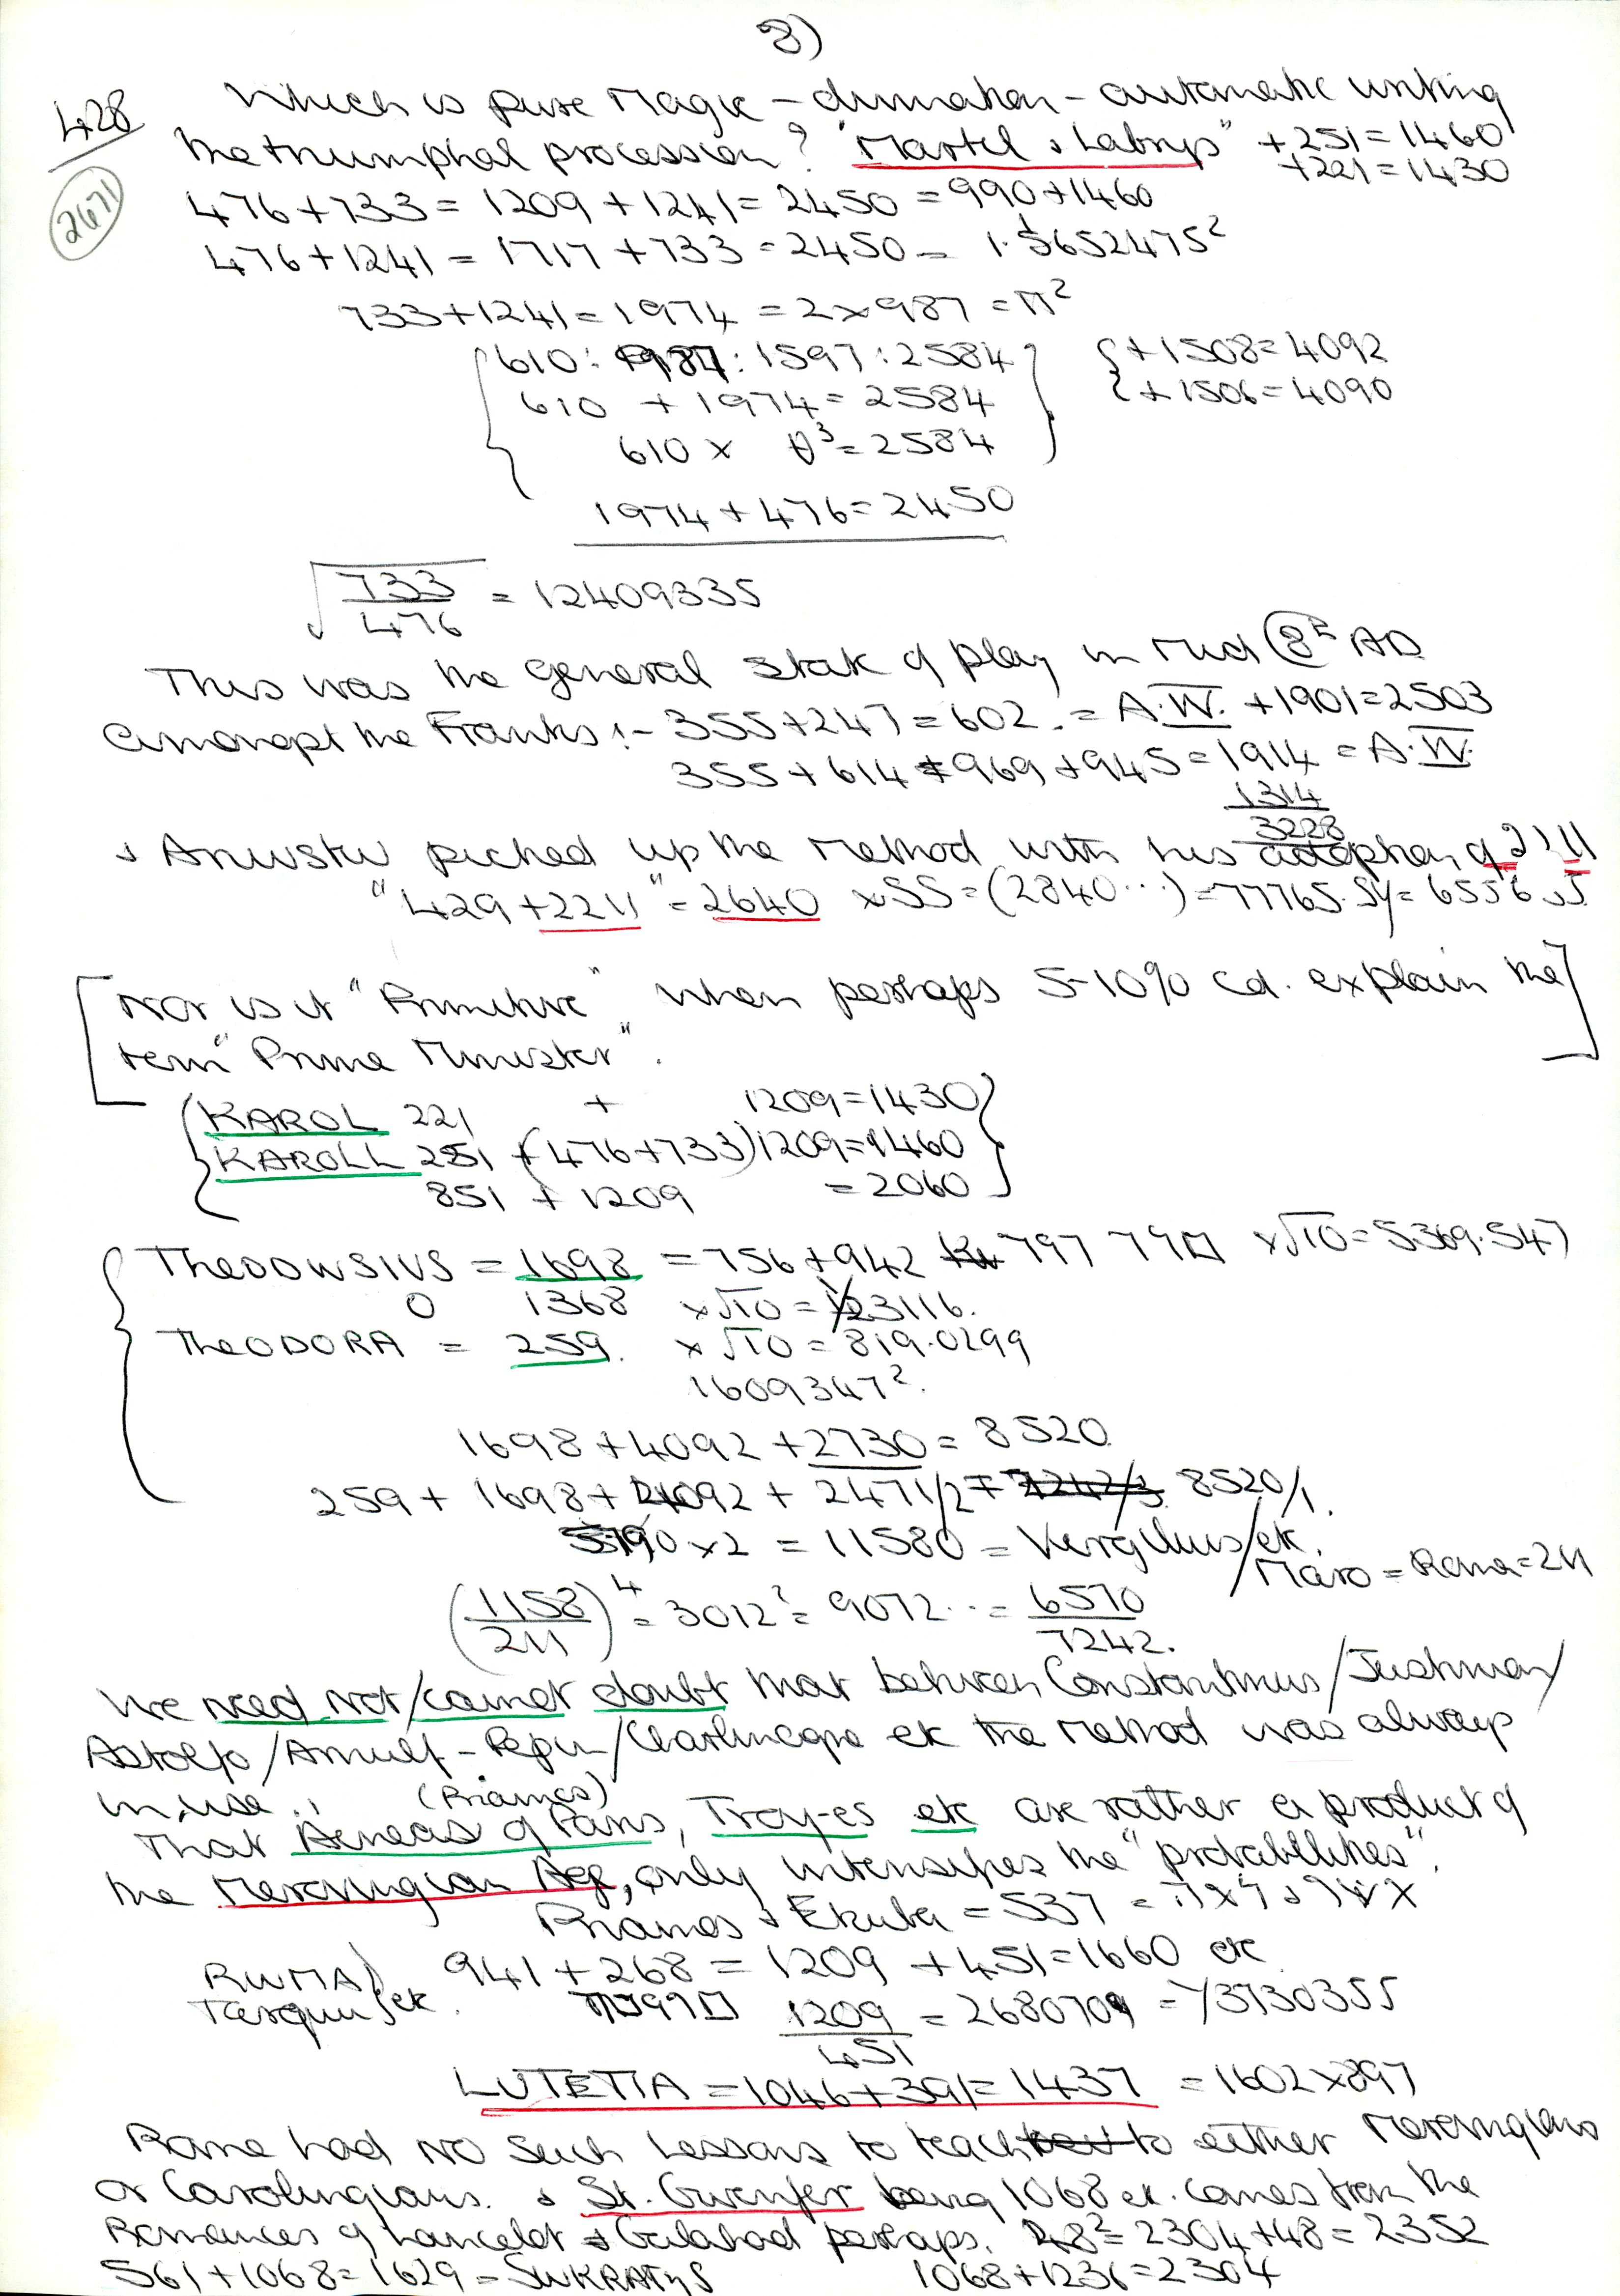 8)
428
2671
Which is pure Magic – divination – automatic writing
the triumphal procession? "Martel & Labrys" +251=1460
+221=1430
476+733=1209+1241=2450=990+1460
476+1241=1717+733=2450=
733+1241=1974=2×987=
610: 987:1597:2584 {+1508=4092
610 +1974=2584 {+1506=4090
610 × θ³=2584
1974+476=2450
√733/476 = 12409335
This was the general state of play in Mid 8th AD
amongst the Franks:- 355+247=602.=A.W. +1901=2503
355+614=969+945=1914=A.W.
1314
3228
& picked up the Method with his adoption of 2211
"429+2211"=2640 ×SS=(2840...)=77765.
[Nor is it "Primitive" when perhaps 5-10% cd. explain the
term "Prime Minister".]
KAROL 221 + 1209=1430
KAROLL 251 +(476+733)1209=1460
851 + 1209 =2060
TheODWSIVS = 1698 =756+942 ×√10=5369.547
O 1368 ×√10=
TheODORA = 259. ×√10=819.0299
1609347².
1698+4092+2730=8520
259+1698+4092+2471/2= 8520/1.
5790×2=11580=Vergilius/etc.
/Maro=Roma=211
(1158/211)⁴=3012²=9072...=6570
7242.
We need not/cannot doubt that between Constantinus/Justinian/
Astolfo/Arnulf–Pepin/Charlemagne etc the Method was always
in use.
(Priamos)
That Aeneas of Paris, Troy-es etc are rather a product of
the Merovingian Age, only intensifies the "probabilities".
Priamos & Ekuba=537=
RWMA 941+268=1209+451=1660 etc
Tarquin etc. 1209/451=2680709=
LUTETIA=1046+391=1437=1602×897
Rome had NO Such Lessons to teach to either Merovingians
or Carolingians. & St. being 1068 etc. comes from the
Romances of Lancelot & Galahad perhaps. 48²=2304+48=2352
561+1068=1629=SWKRATηS 1068+1236=2304